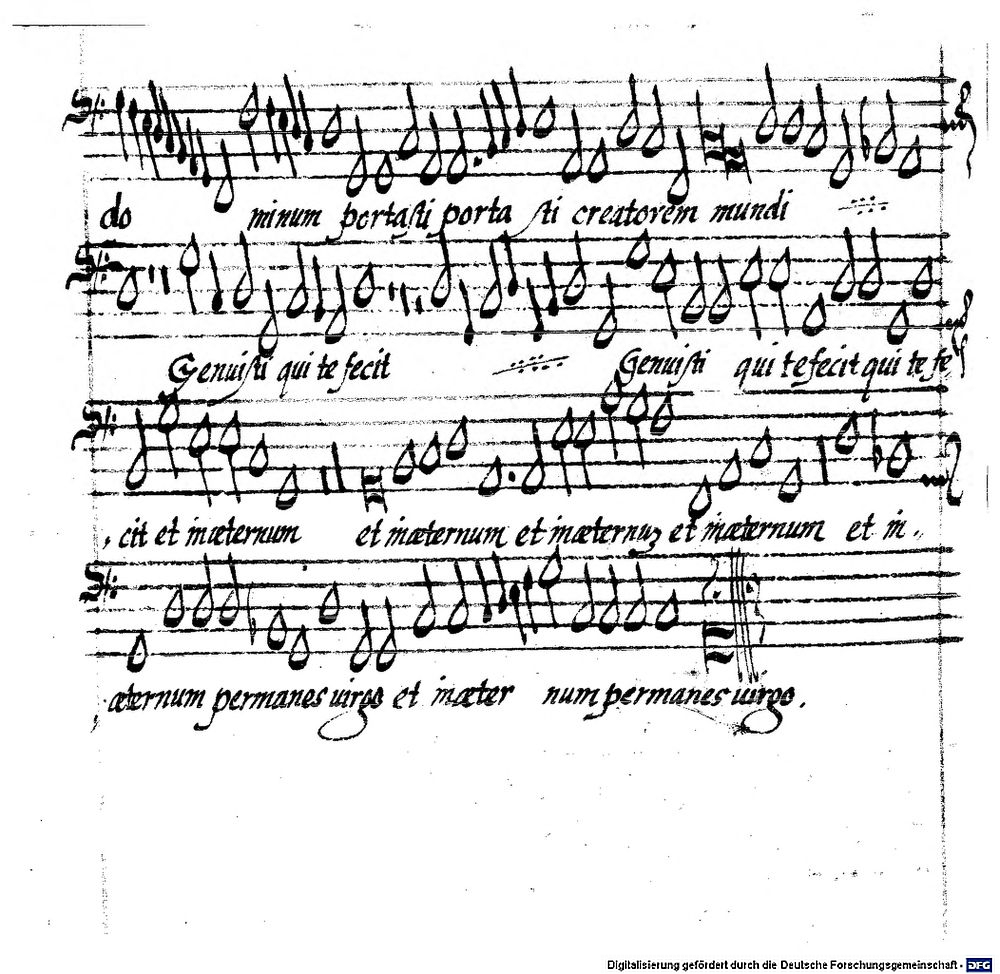 do minum portasti porta sti creatorem mundi
Genuisti qui te fecit Genuisti qui te fecit qui te fe
cit et inæternum et inæternum et inæternuʒ et inæternum et in,,
æternum permanes uirgo et inæter num permanes uirgo.
Digitalisierung gefördert durch die Deutsche Forschungsgemeinschaft - DFG